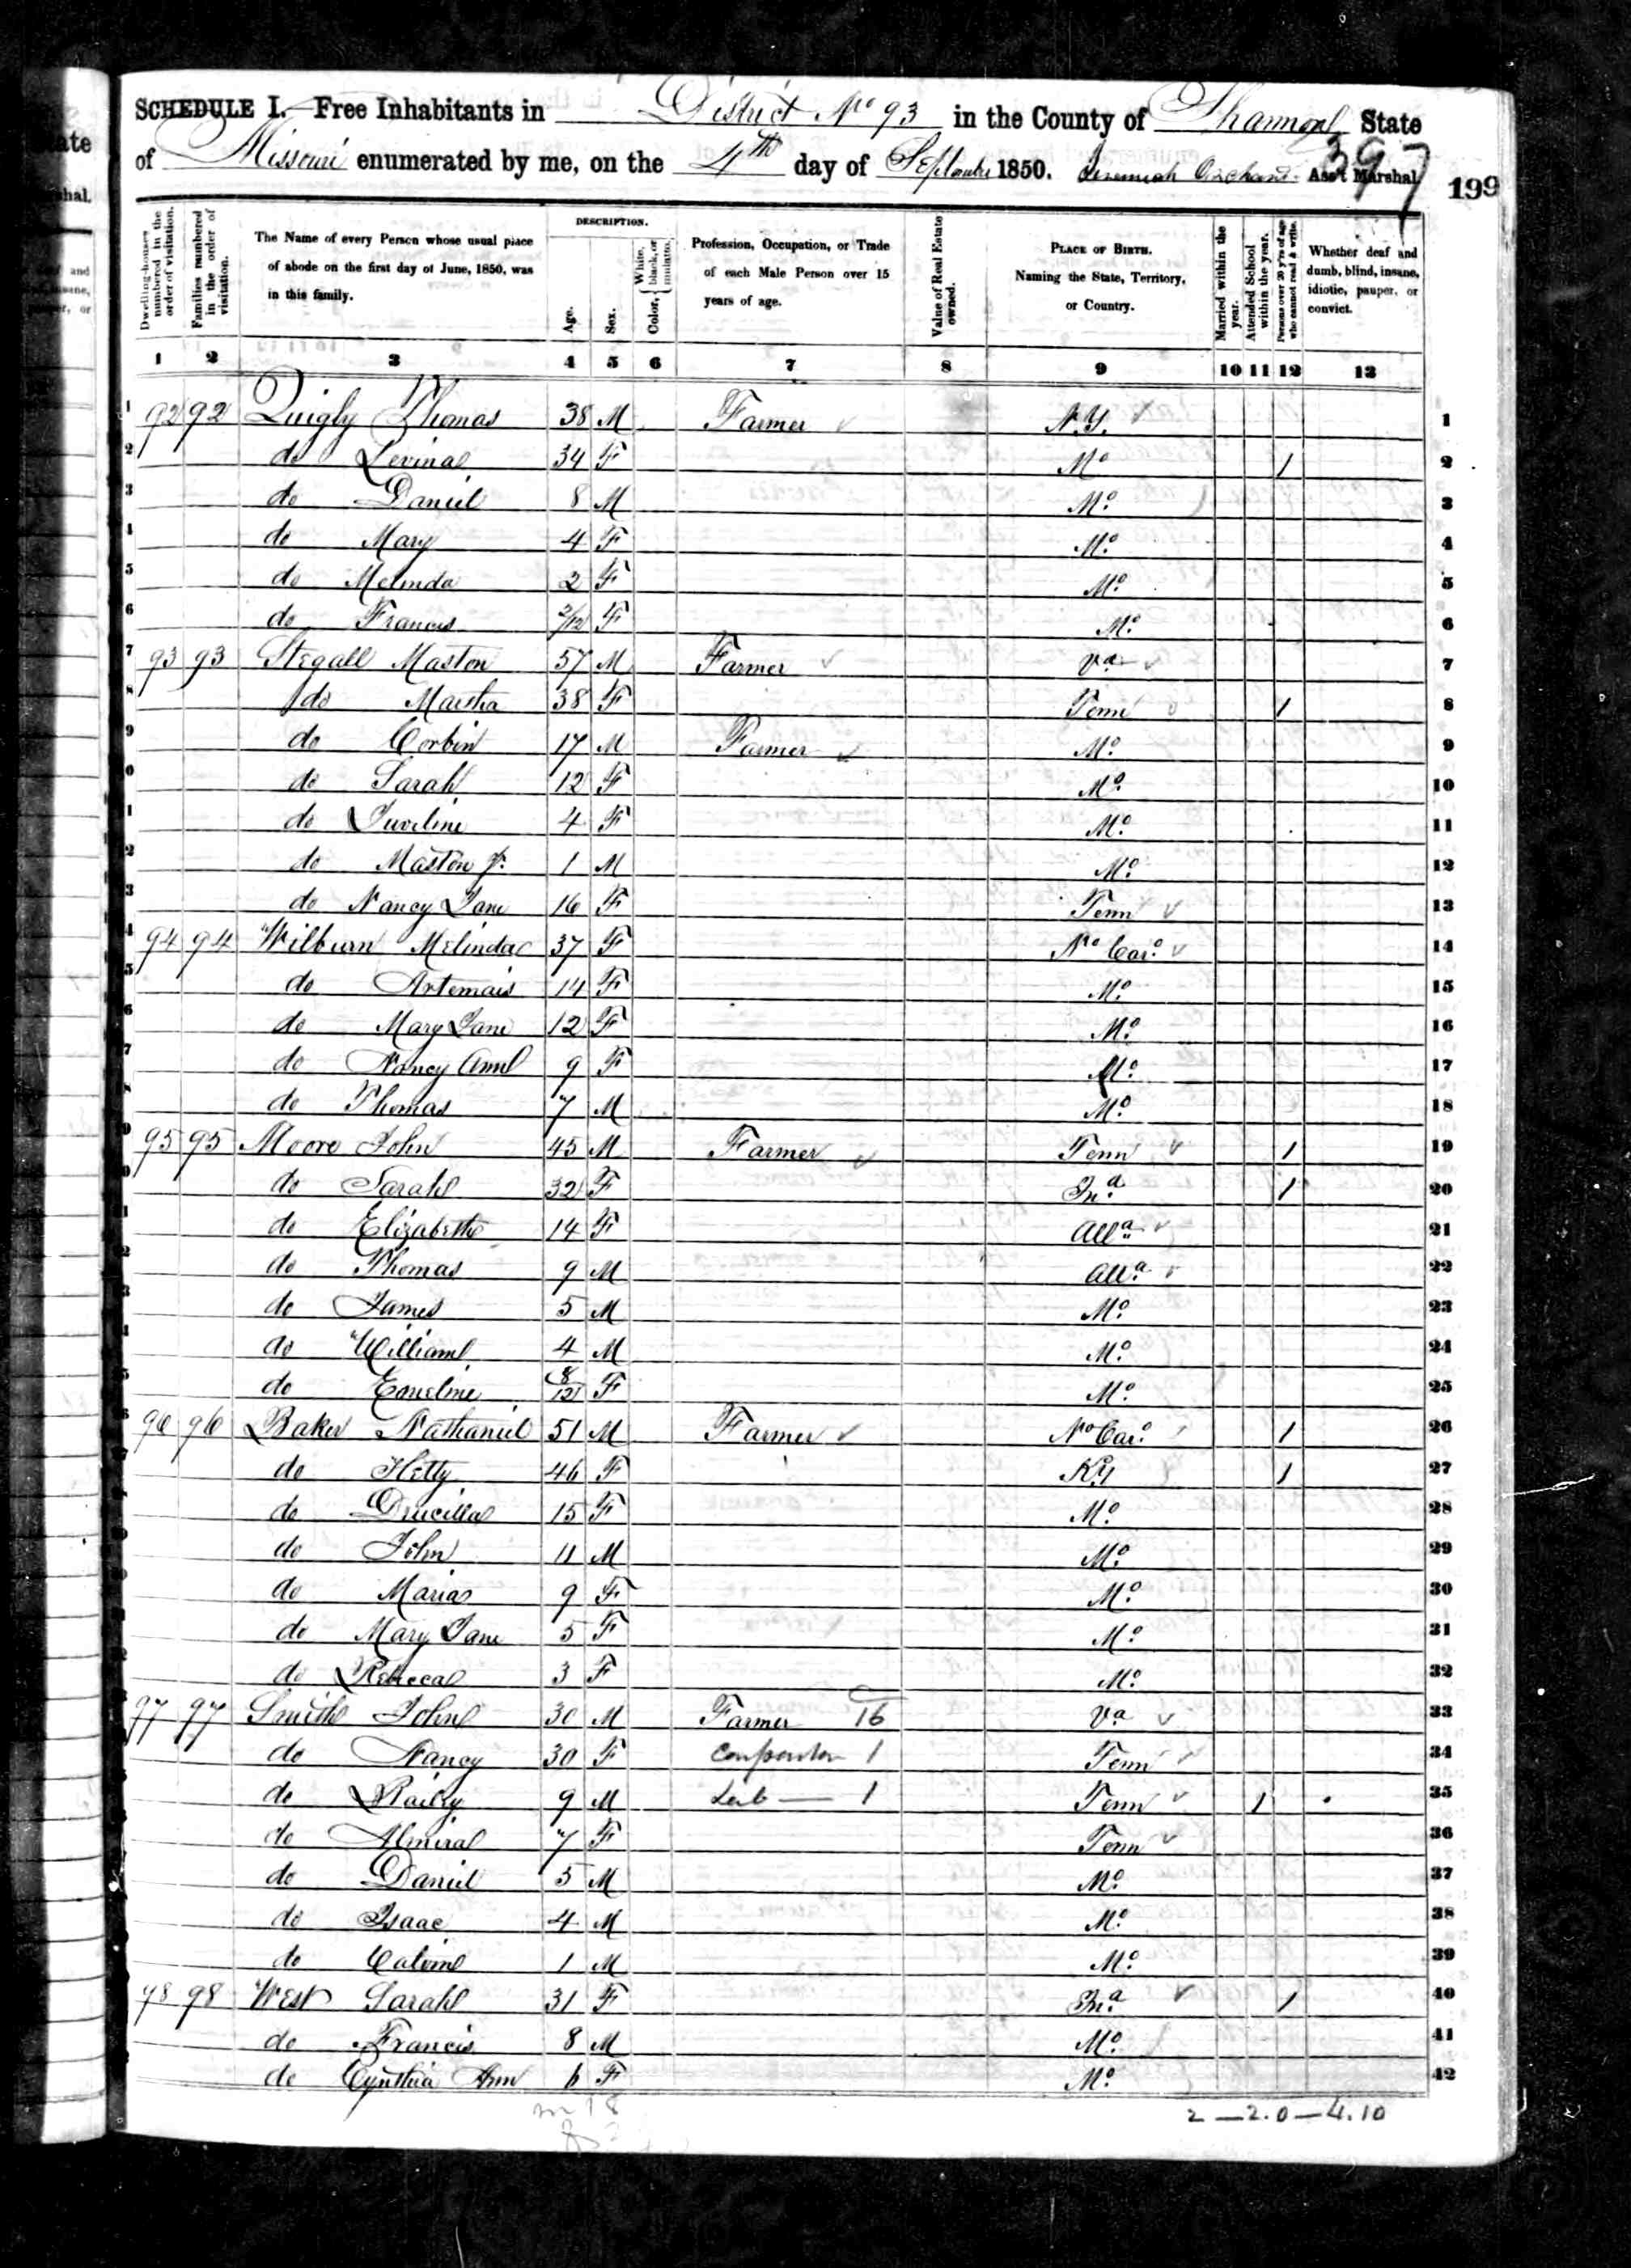 SCHEDULE I.—Free Inhabitants in District No 93 in the County of Shannon State
of Missouri enumerated by me, on the 4th day of September 1850. Jeremiah Ass't Marshal.
397
199
Dwelling-houses numbered in the order of visitation.
Families numbered in the order of visitation.
The Name of every Person whose usual place of abode on the first day of June, 1850, was in this family.
DESCRIPTION.
Age.
Sex.
Color, { White, black, or mulatto.
Profession, Occupation, or Trade of each Male Person over 15 years of age.
Value of Real Estate owned.
PLACE OF BIRTH. Naming the State, Territory, or Country.
Married within the year.
Attended School within the year.
Persons over 20 y'rs of age who cannot read & write.
Whether deaf and dumb, blind, insane, idiotic, pauper, or convict.
1 2 3 4 5 6 7 8 9 10 11 12 13
1 92 92 Quigly Thomas 38 M Farmer N.Y. 1
2 do Levina 34 F Mo 1 2
3 do Daniel 8 M Mo. 3
4 do Mary 4 F Mo. 4
5 do Melinda 2 F Mo. 5
6 do Francis 2/12 F Mo. 6
7 93 93 Stegall Maston 57 M Farmer Va 7
8 do Martha 38 F Tenn 1 8
9 do Corbin 17 M Farmer Mo. 9
0 do Sarah 12 F Mo. 10
1 do 4 F Mo. 11
2 do Maston Jr. 1 M Mo. 12
3 do Nancy Jane 16 F Tenn 13
4 94 94 Wilburn Melinda 37 F No Car. 14
5 do Artemais 14 F Mo. 15
6 do Mary Jane 12 F Mo. 16
7 do Nancy Ann 9 F Mo. 17
8 do Thomas 7 M Mo. 18
9 95 95 Moore John 45 M Farmer Tenn 1 19
0 do Sarah 32 F Ina. 1 20
1 do Elizabeth 14 F Alla. 21
2 do Thomas 9 M Alla. 22
3 do James 5 M Mo. 23
4 do William 4 M Mo. 24
5 do Emeline 8/12 F Mo. 25
6 96 96 Baker Nathaniel 51 M Farmer No Car. 1 26
7 do Hetty 46 F Ky 1 27
do Drucilla 15 F Mo. 28
do John 11 M Mo. 29
do Maria 9 F Mo. 30
do Mary Jane 5 F Mo. 31
do Rebecca 3 F Mo. 32
97 97 Smith John 30 M Farmer 16 Va 33
do Nancy 30 F Carpenter 1 Tenn 34
do Raily 9 M Lab — 1 Tenn 1 35
do Almira 7 F Tenn 36
do Daniel 5 M Mo. 37
do Isaac 4 M Mo. 38
do 1 M Mo. 39
98 98 West Sarah 31 F Ina. 1 40
do Francis 8 M Mo. 41
do Cynthia Ann 6 F Mo. 42
m 18
2—2.0—4.10